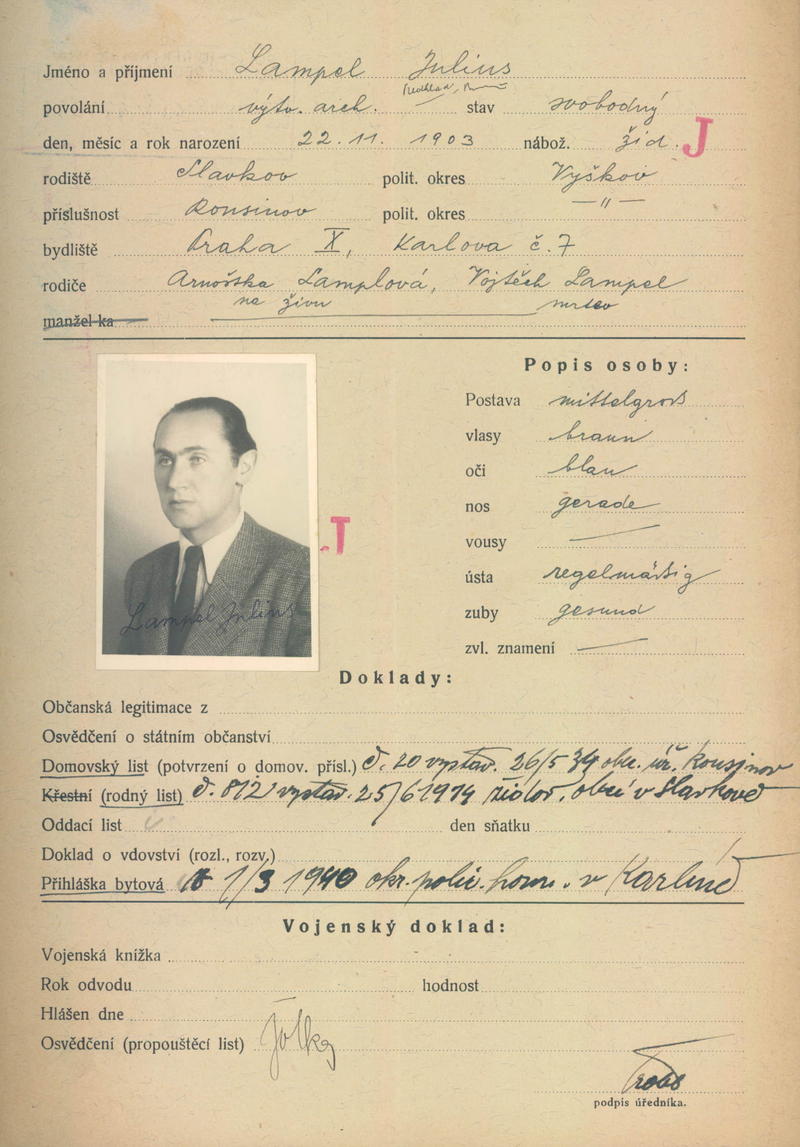 Jméno a příjmení Lampel Julius
povolání výtv. arch. stav svobodný
den, měsíc a rok narození 22. 11. 1903 nábož. žid. J
rodiště Slavkov polit. okres Vyškov
příslušnost Rousinov polit. okres — " —
bydliště Praha X, Karlova č. 7
rodiče Arnoštka Lamplová, Vojtěch Lampel
na živu mrtev
manžel-ka
Popis osoby:
Postava mittelgroß
vlasy braun
oči blau
nos gerade
vousy —
J
ústa regelmäßig
zuby gesund
Lampel Julius
zvl. znamení —
Doklady:
Občanská legitimace z
Osvědčení o státním občanství
Domovský list (potvrzení o domov. přísl.) č. 20 vystav. 26/5 39 ob. úř. Rousínov
Křestní (rodný list) č. 812 vystav. 25/6 1919 žid. ob. v Slavkově
Oddací list den sňatku
Doklad o vdovství (rozl., rozv.)
Přihláška bytová 1/3 1940 okr. polic. kom. v Karlíně
Vojenský doklad:
Vojenská knížka
Rok odvodu hodnost
Hlášen dne
Osvědčení (propouštěcí list)
podpis úředníka.